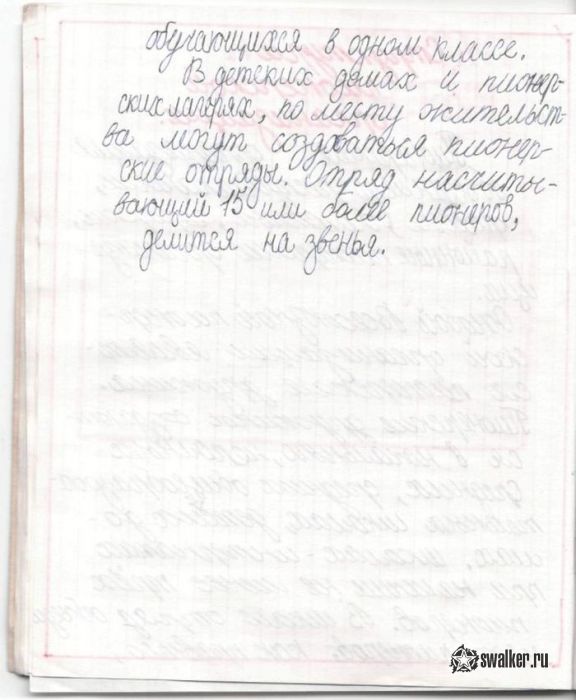 обучающихся в одном классе.
В детских домах и пионер-
ских лагерях, по месту жительст-
ва могут создаваться пионер-
ские отряды. Отряд насчиты-
вающий 15 или более пионеров,
делится на звенья.
swalker.ru